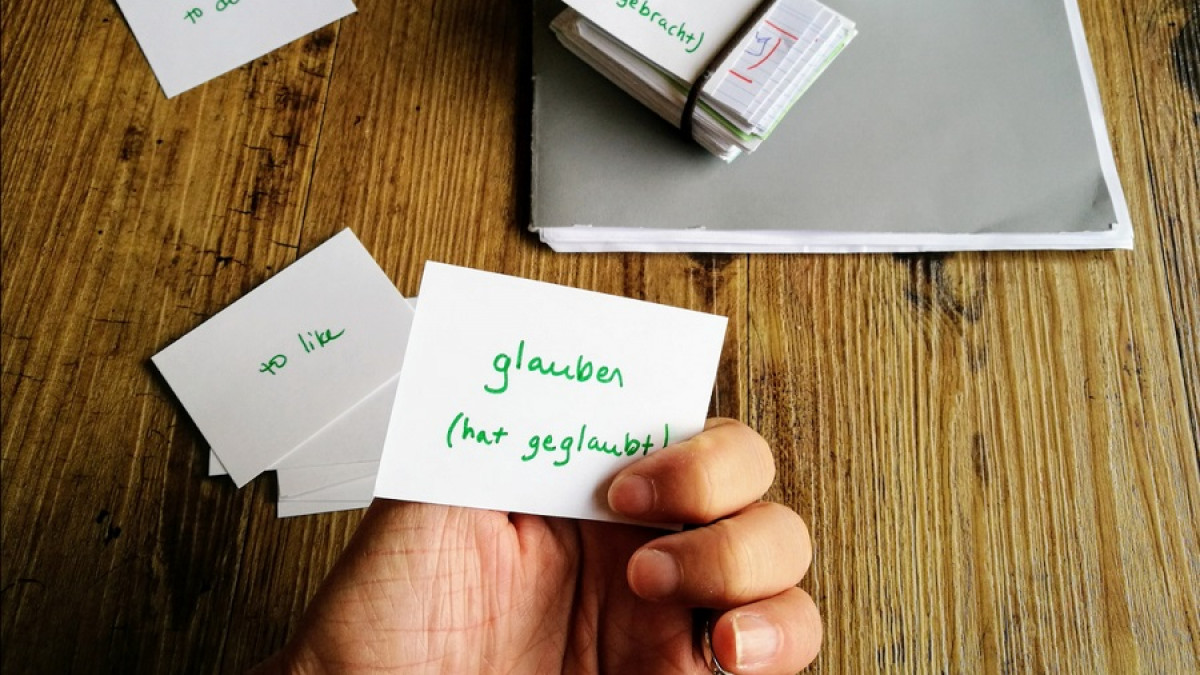 to
gebracht)
to like
glauben
(hat geglaubt)